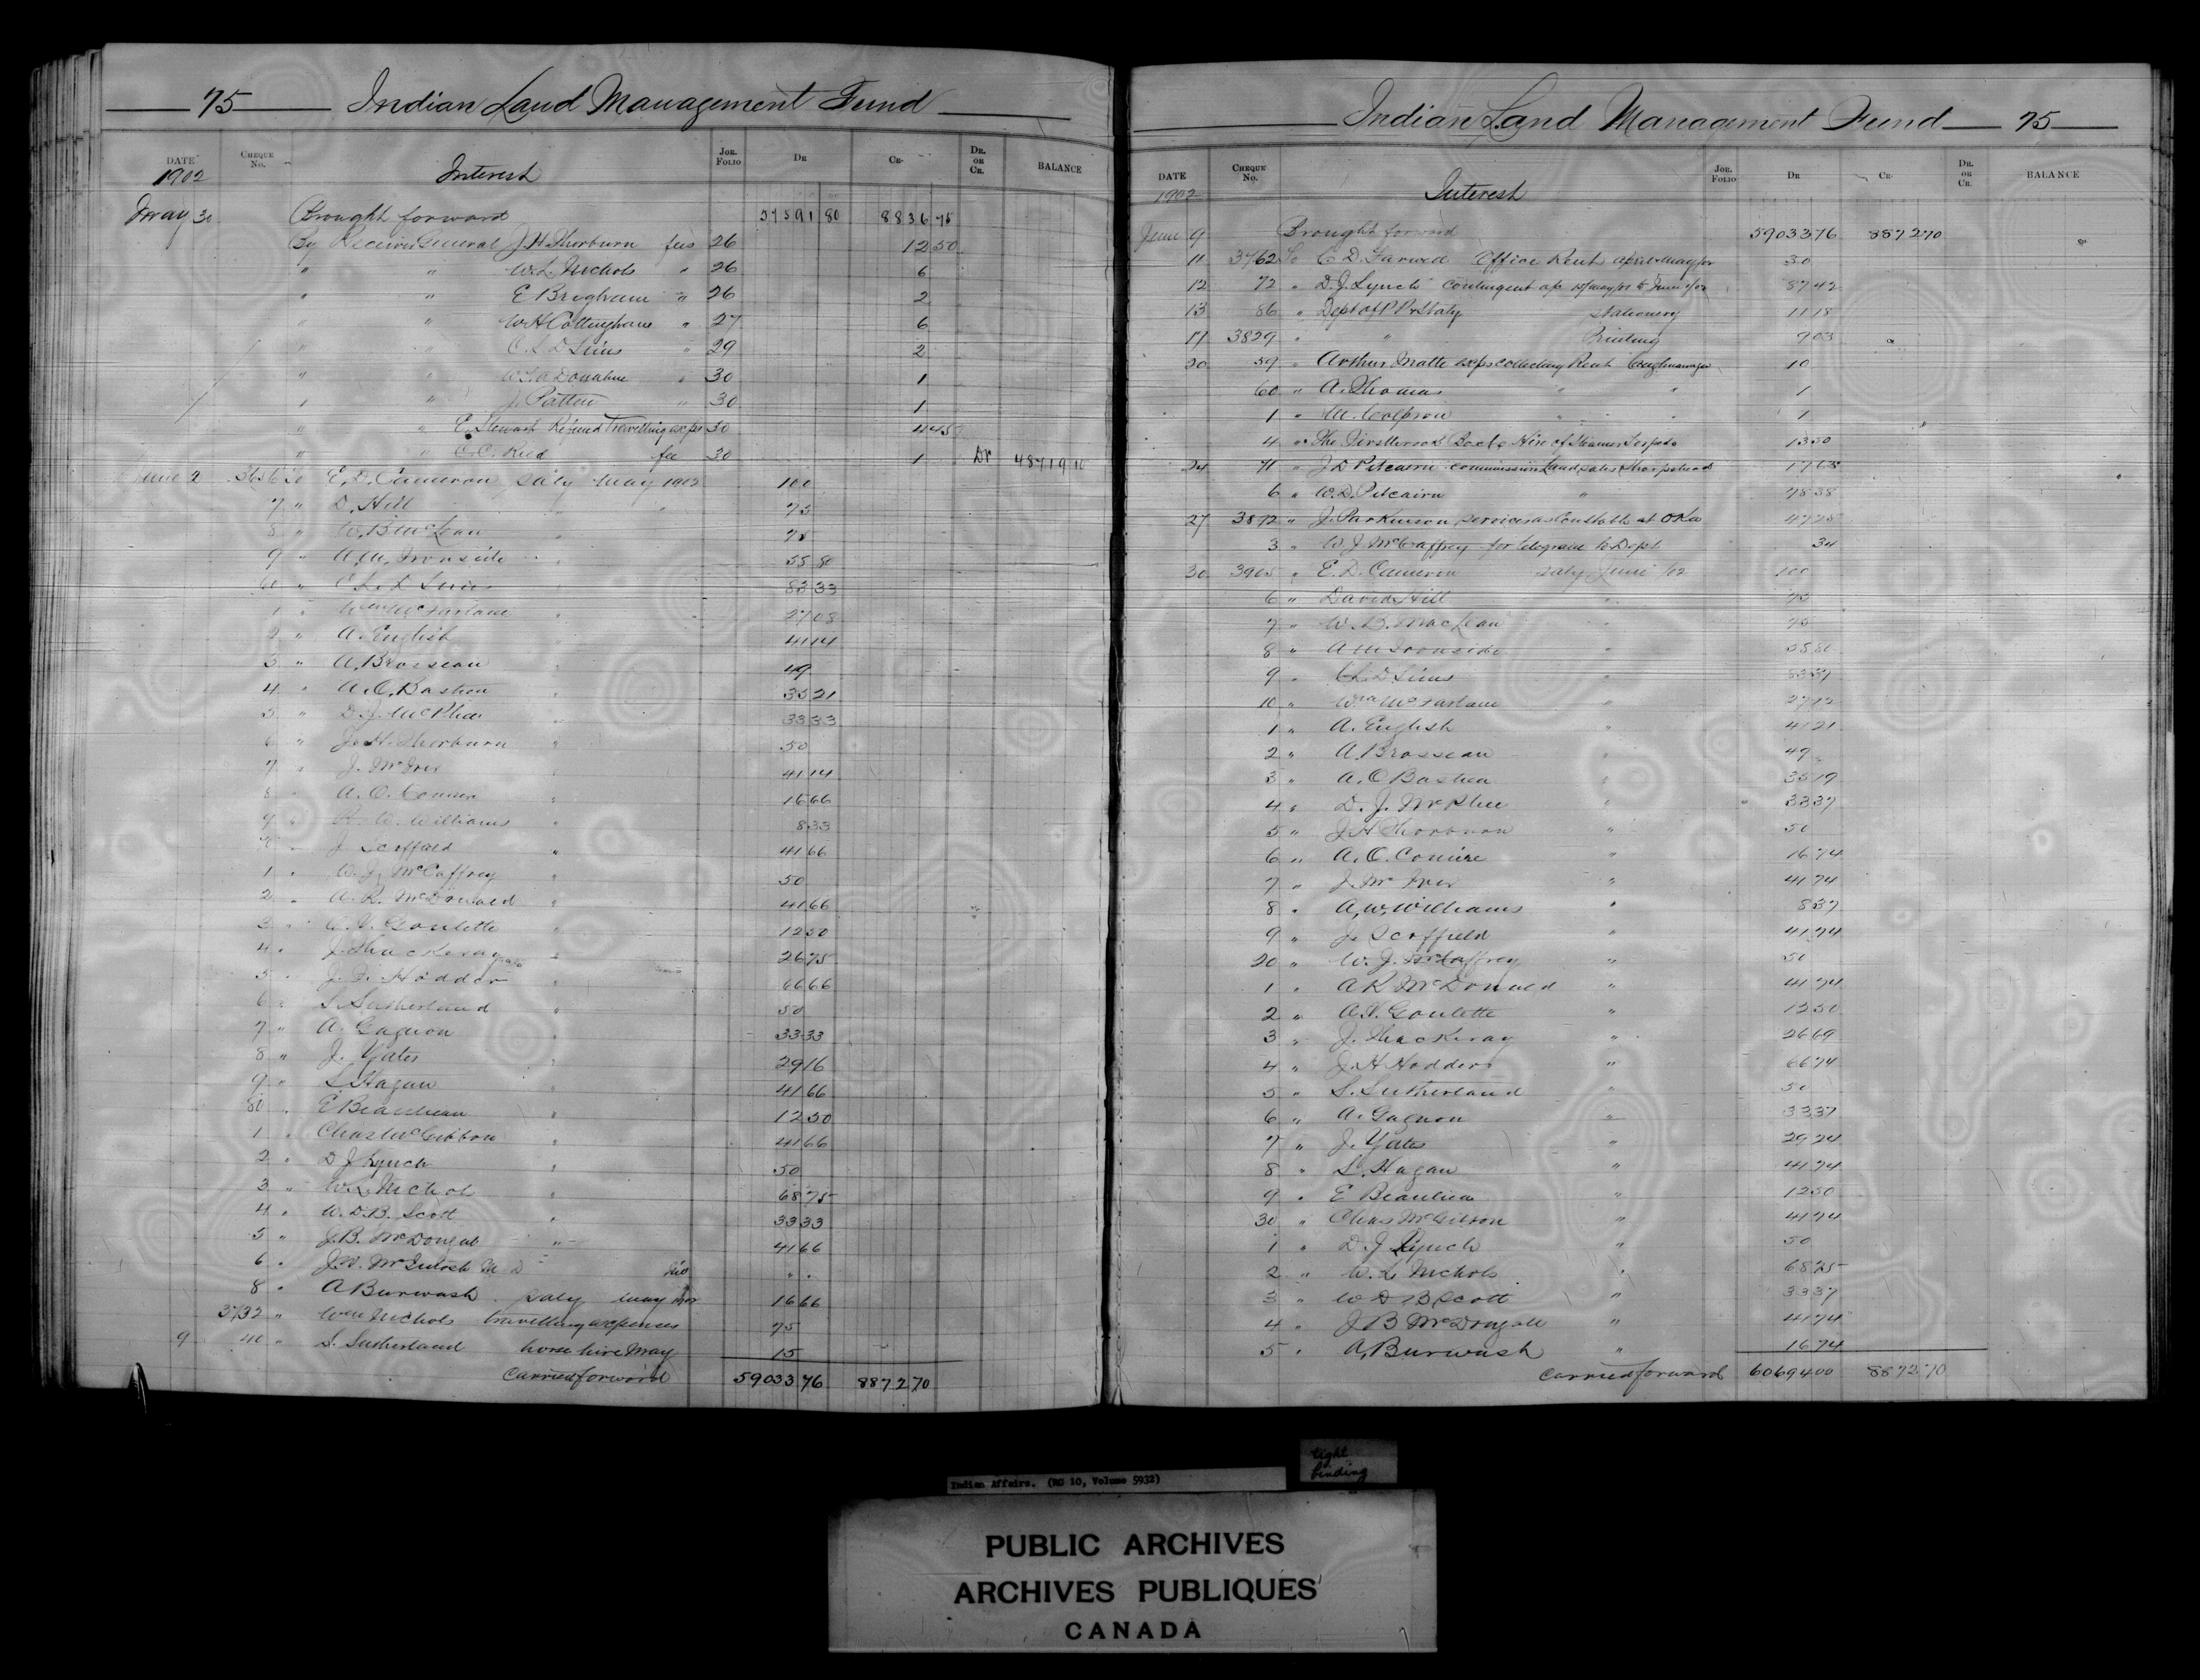 75 Indian Land Management Fund
DATE CHEQUE No. Interest JOR. FOLIO DR CR. DR. OR CR. BALANCE
1902
May 30 Brought forward 57591 80 8836 75
By Receiver General J H Thorburn fees 26 12 50
" " W. L. Nichols " 26 6
" " E Brigham " 26 2
" " W H Cottingham " 27 6
" " C. L. D Sims " 29 2
" " Donahue " 30 1
" " J. Patten " 30 1
" " E. Stewart Refund Travelling exps 30 4 45
" " C. C. Reid fee 30 1 Dr 48719 10
June 2 3656 To E. D. Cameron saly May 1902 100
7 " D. Hill " 75
8 " W. B McLean " 75
9 " A. M. Ironside " 55 80
60 " C L D Sims " 83 33
1 " Wm McFarlane " 27 08
2 " A. English " 41 14
3 " A. Brosseau " 49
4 " A. O. Bastien " 35 21
5 " D. J. McPhee " 33 33
6 " J. H. Thorburn " 50
7 " J. McIver " 41 14
8 " A. O. Comire " 16 66
9 " A. W. Williams " 8 33
70 " J Scoffield " 41 66
1 " W. J. McCaffrey " 50
2 " A. R. McDonald " 41 66
3 " A. V. Goulette " 12 50
4 " J. Thackeray " 26 75
5 " J. H. Hodder " 66 66
6 " S. Sutherland " 50
7 " A. Gagnon " 33 33
8 " J. Yates " 29 16
9 " S. Hagan " 41 66
80 " E Beaulieau " 12 50
1 " Chas McGibbon " 41 66
2 " D J Lynch " 50
3 " W. L. Nichol " 68 75
4 " W. D. B. Scott " 33 33
5 " J. B. McDougal " 41 66
6 " J. W. McIntosh M D " "
8 " A Burwash saly May 16 66
3732 " Wm Nichols travelling expenses 75
9 40 " S. Sutherland horse hire May 15
Carried forward 59033 76 8872 70
Indian Land Management Fund 75
DATE CHEQUE No. JOR. FOLIO DR CR. DR. OR CR. BALANCE
1902 Interest
June 9 Brought forward 59033 76 8872 70
11 3762 To C. D. Office Rent April & May/02 30
12 72 " D. J. Lynch contingent a/c to June 1/02 87 42
13 86 " Dept of P P & Staty Stationery 11 18
17 3829 " " Printing 9 03
20 59 " Arthur Matte exps collecting Rent Caughnawaga 10
60 " A. Thomas " " 1
1 " M. " " 1
4 " The Hire of Steamer 13 50
24 71 " J D Pitcairn commission Land sales 17 63
6 " W. D. Pitcairn " 78 38
27 3892 " J. Parkinson services as Constable at Oka 47 25
3 " W J McCaffrey for telegram to Dept 34
30 3905 " E. D. Cameron saly June /02 100
6 " David Hill " 75
7 " W. B. MacLean " 75
8 " A M Ironside " 55 80
9 " C L D Sims " 83 37
10 " Wm McFarlane " 27 12
1 " A. English " 41 21
2 " A. Brosseau " 49
3 " A. O Bastien " 35 19
4 " D. J. McPhee " 33 37
5 " J H Thorburn " 50
6 " A. O. Comire " 16 74
7 " J. McIver " 41 74
8 " A. W. Williams " 8 37
9 " J. Scoffield " 41 74
20 " W. J. McCaffrey " 50
1 " A R McDonald " 41 74
2 " A. V. Goulette " 12 50
3 " J. Thackeray " 26 69
4 " J. H Hodder " 66 74
5 " S. Sutherland " 50
6 " A. Gagnon " 33 37
7 " J. Yates " 29 24
8 " S. Hagan " 41 74
9 " E Beaulieu " 12 50
30 " Chas McGibbon " 41 74
1 " D. J. Lynch " 50
2 " W. L Nichols " 68 75
3 " W D B Scott " 33 37
4 " J B McDougall " 41 74
5 " A. Burwash " 16 74
Carried forward 60694 00 8872 70
tight
binding
Indian Affairs. (RG 10, Volume 5932)
PUBLIC ARCHIVES
ARCHIVES PUBLIQUES
CANADA